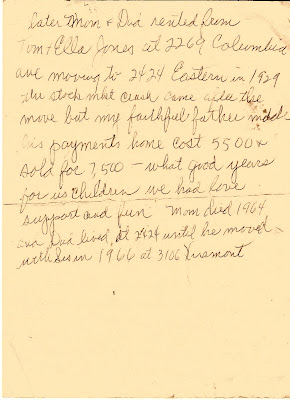 later Mom + Dad rented from
Tom + Ella Jones at 2269 Columbia
ave moving to 2424 Eastern in 1929
the stock mkt crash came after the
move but my faithful father made
his payments home cost 5500 &
sold for 7,500 – what good years
for us children we had love
support and fun Mom died 1964
and Dad lived at 2424 until he moved
with Sis in 1966 at 3106